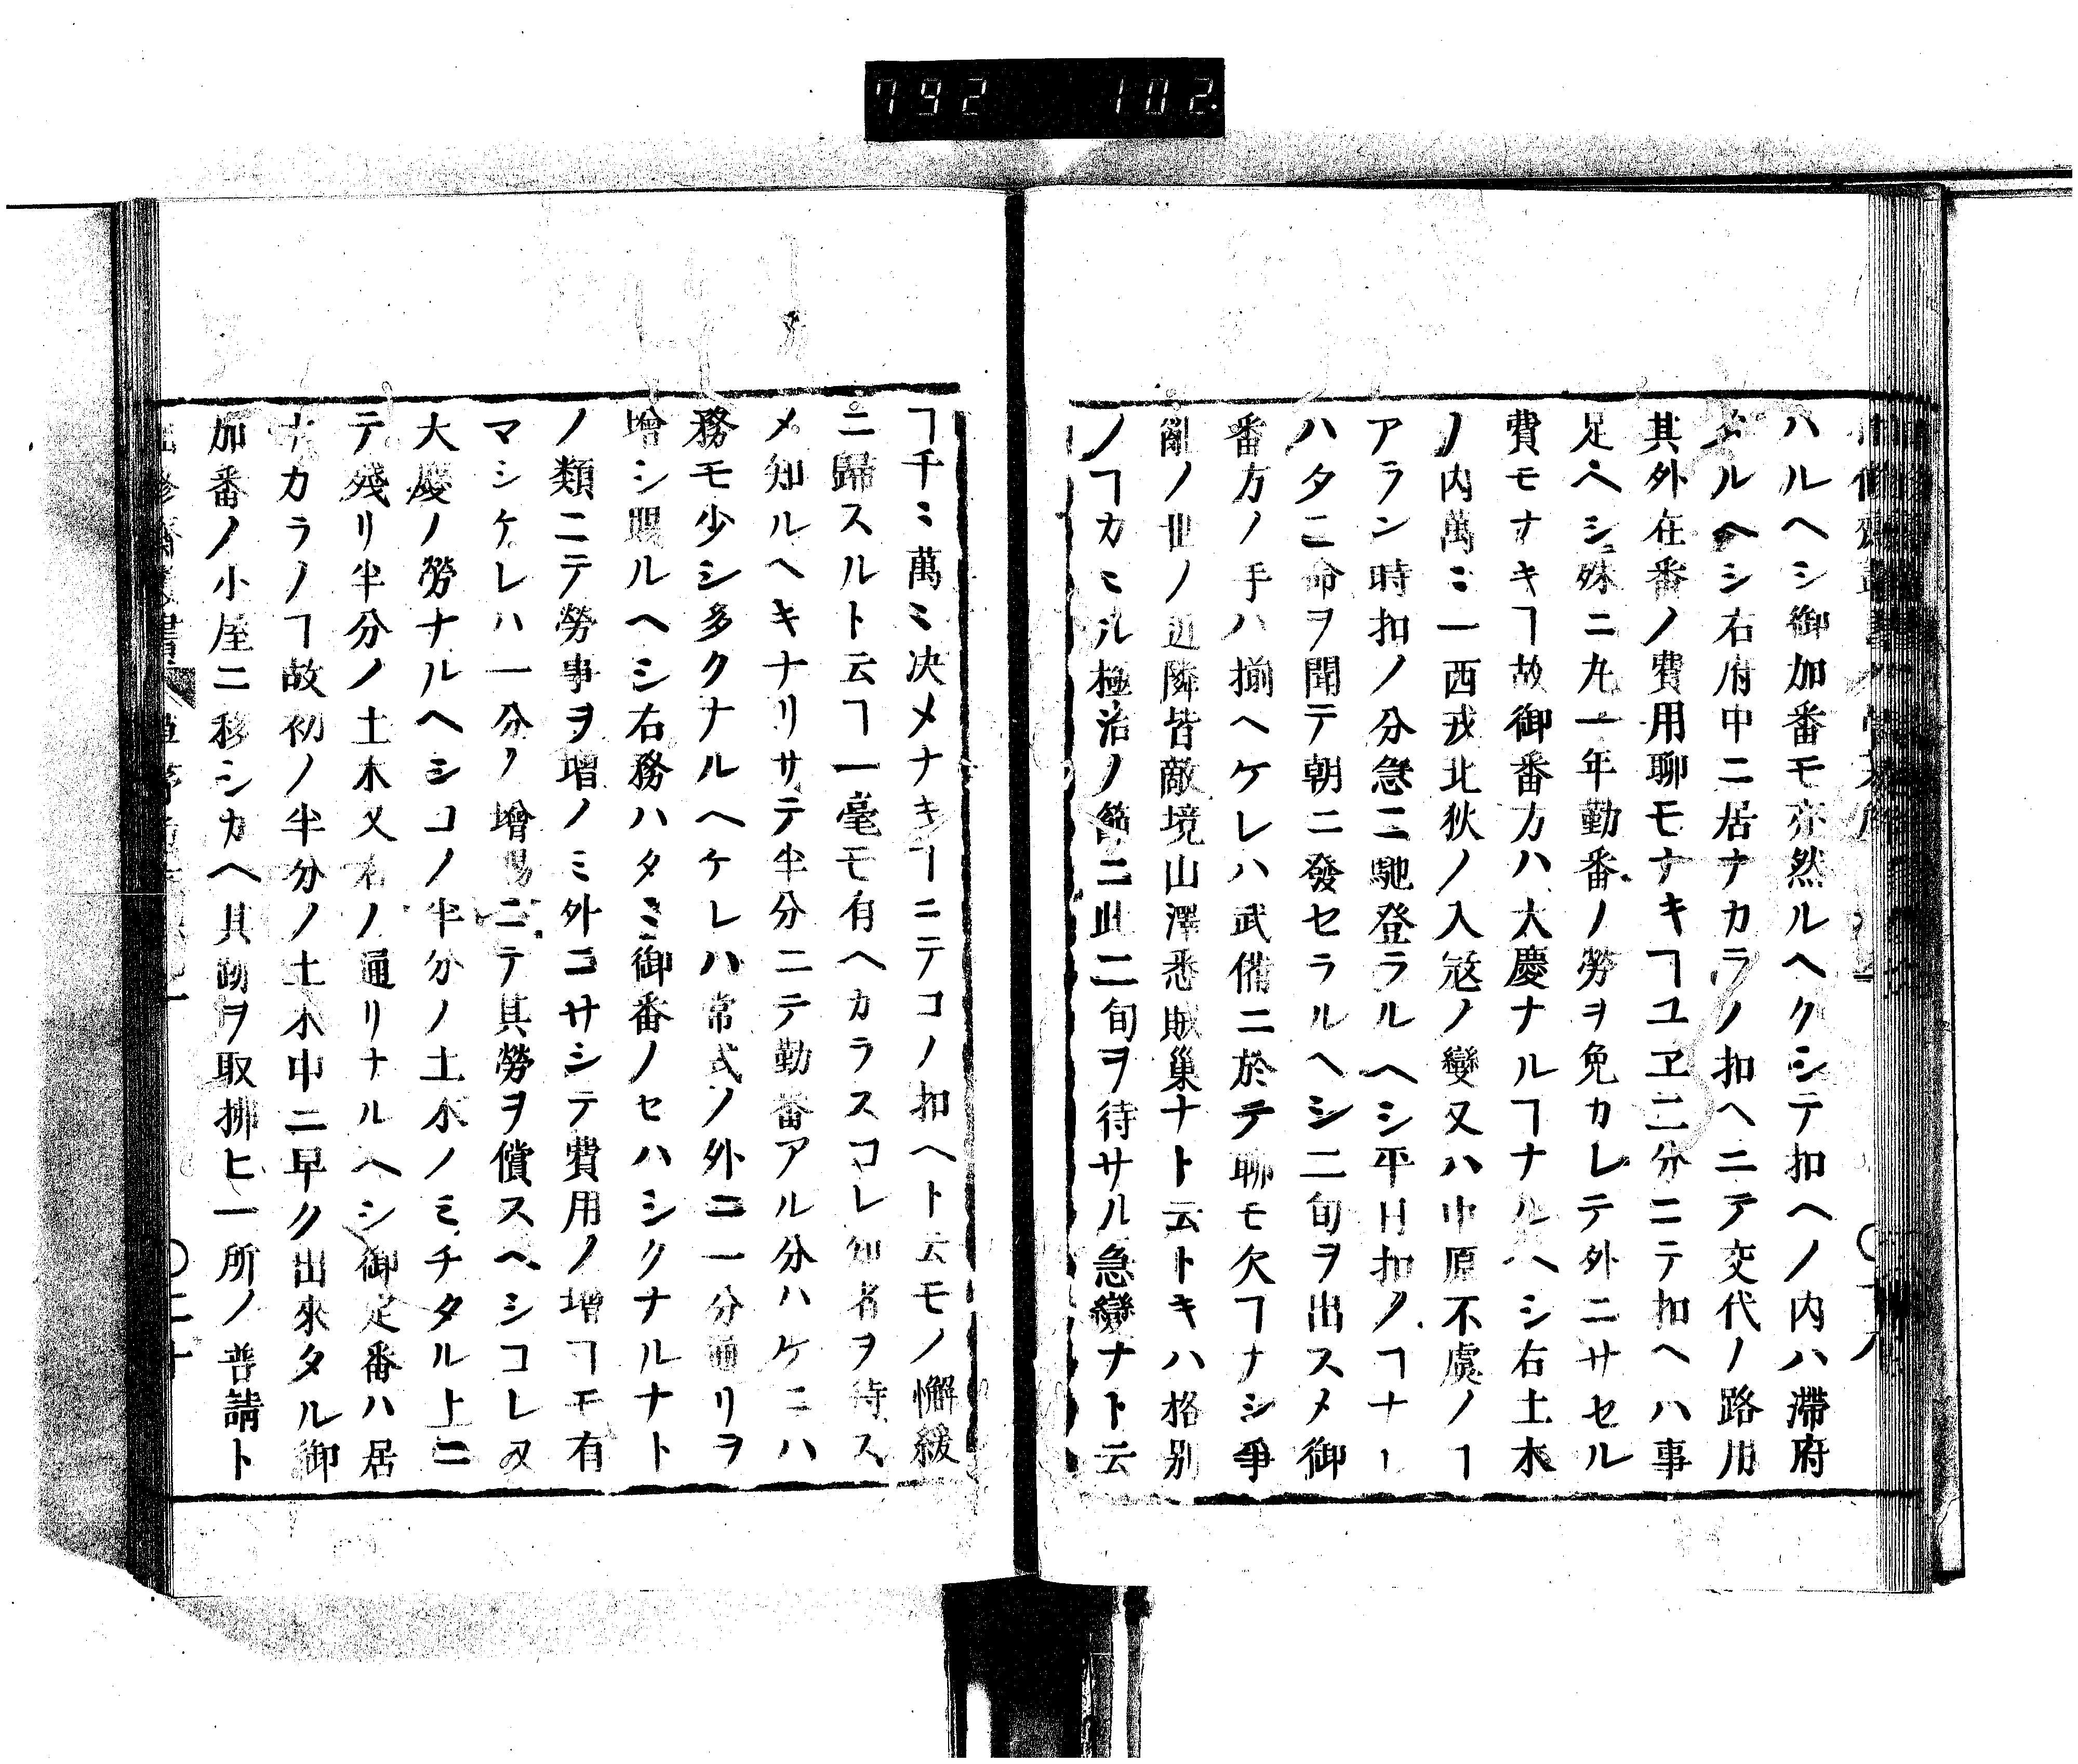 792 102
ハルヘシ御加番モ亦然ルヘクシテ扣ヘノ内ハ滯府
ルヘシ右府中ニ居ナカラノ扣ヘニテ交代ノ路用
其外在番ノ費用聊モナキヿユヱ二分ニテ扣ヘハ事
足ヘシ殊ニ九一年勤番ノ勞ヲ免カレテ外ニサセル
費モナキヿ故御番方ハ大慶ナルヿナルヘシ右土木
ノ内萬ミ一西戎北狄ノ入冦ノ變又ハ中原不虞ノヿ
アラン時扣ノ分急ニ馳登ラルヘシ平日扣ノヿナレ
ハタニ命ヲ聞テ朝ニ發セラルヘシ二旬ヲ出スメ御
番方ノ手ハ揃ヘケレハ武備ニ於テ聊モ欠ヿナシ爭
亂ノ世ノ近隣皆敵境山澤悉賊巢ナト云トキハ格别
ノヿカミル極治ノ節ニ此二旬ヲ待サル急變ナト云
ヿ千ミ萬ミ决メナキヿニテコノ扣ヘト云モノ懈緩
ニ歸スルト云ヿ一毫モ有ヘカラスコレ知者ヲ待ス
メ知ルヘキナリサテ半分ニテ勤番アル分ハケニハ
務モ少シ多クナルヘケレハ常式ノ外ニ一分通リヲ
增シ賜ルヘシ右務ハタミ御番ノセハシクナルナト
ノ類ニテ勞事ヲ增ノミ外ニサシテ費用ノ增ヿモ有
マシケレハ一分ノ增賜ニテ其勞ヲ償スヘシコレ又
大慶ノ勞ナルヘシコノ半分ノ土木ノミチタル上ニ
テ殘リ半分ノ土木又右ノ通リナルヘシ御定番ハ居
ナカラノヿ故初ノ半分ノ土木中ニ早ク出來タル御
加番ノ小屋ニ移シカヘ其跡ヲ取拂ヒ一所ノ普請ト
〇二十